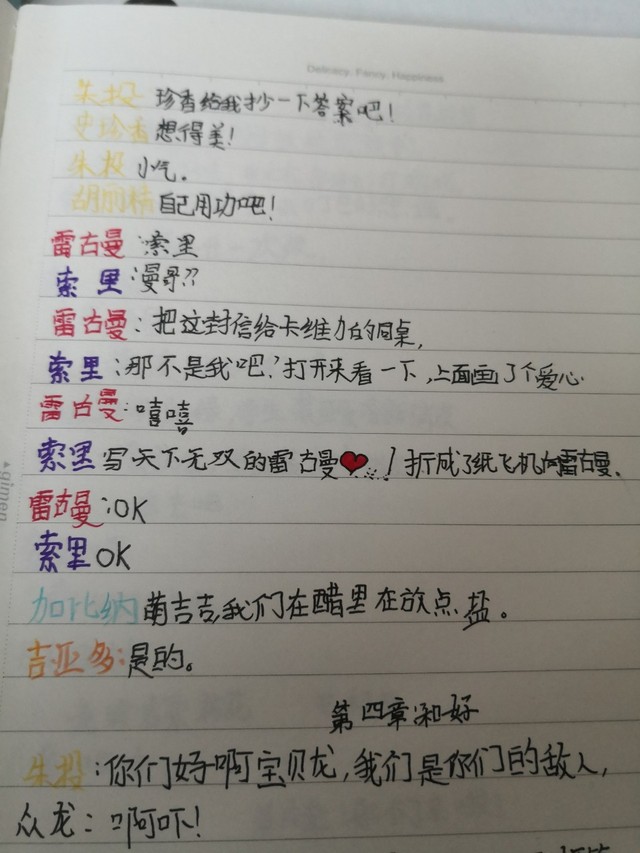 Delicacy, Fancy, Happiness
朱投 珍香给我抄一下答案吧！
史珍香 想得美！
朱投 小气。
胡丽精 自己用功吧！
雷古曼：索里
索里：漫哥??
雷古曼：把这封信给卡维力的同桌，
索里：那不是我吧？打开来看一下，上面画了个爱心
雷古曼：嘻嘻
索里 写天下无双的雷古曼❤……！折成了纸飞机向雷古曼、
雷古曼：OK
索里 OK
加比纳 萌吉吉，我们在醋里在放点盐。
吉亚多：是的。
第四章：和好
朱投：你们好啊宝贝龙，我们是你们的敌人，
众龙：啊吓！
gimen